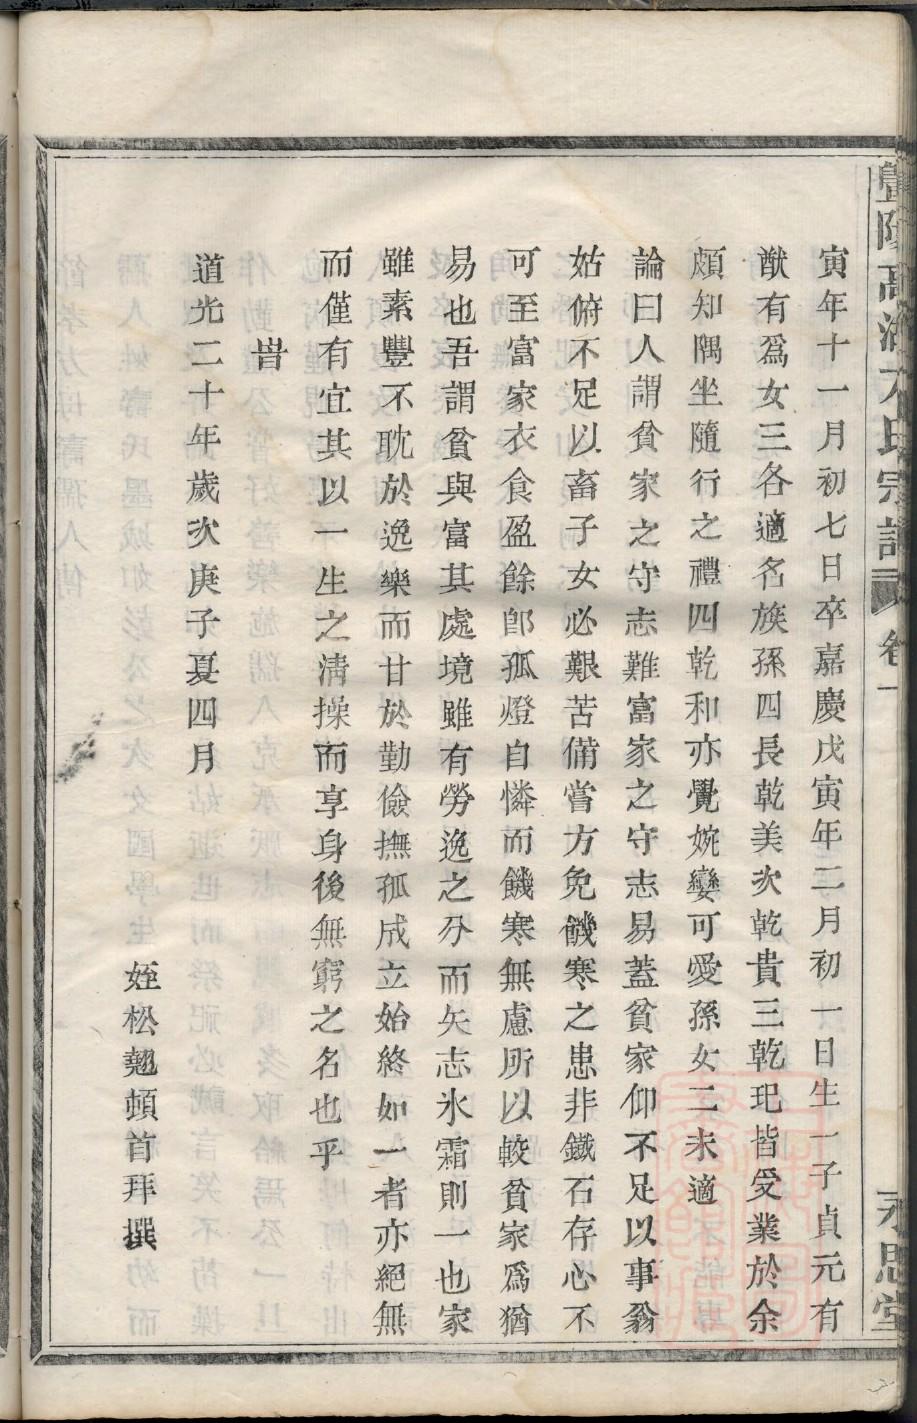 寅年十一月初七日卒嘉慶戊寅年二月初一日生一子貞元有
猷有爲女三各適名族孫四長乾美次乾貴三乾玘皆受業於余
頗知隅坐隨行之禮四乾和亦覺婉孌可愛孫女二未適
論曰人謂貧家之守志難富家之守志易蓋貧家仰不足以事翁
姑俯不足以畜子女必艱苦備嘗方免饑寒之患非鐵石存心不
可至富家衣食盈餘卽孤燈自憐而饑寒無慮所以較貧家爲猶
易也吾謂貧與富其處境雖有勞逸之分而矢志氷霜則一也家
雖素豐不耽於逸樂而甘於勤儉撫孤成立始終如一者亦絕無
而僅有宜其以一生之淸操而享身後無窮之名也乎
旹
道光二十年歲次庚子夏四月
姪松勉頓首拜撰
暨陽高湖氏宗譜 卷一 永思堂